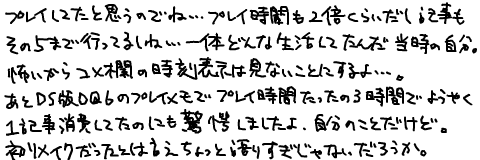 プレイしてたと思うのでね…プレイ時間も2倍くらいだし記事も
その5まで行ってるしね…一体どんな生活してたんだ当時の自分。
怖いからコメ欄の時刻表示は見ないことにするよ…。
あとDS版DQ6のプレイメモでプレイ時間たったの3時間でようやく
1記事消費してたのにも驚愕しましたよ、自分のことだけど。
初リメイクだったとは言えちょっと語りすぎじゃないだろうか。